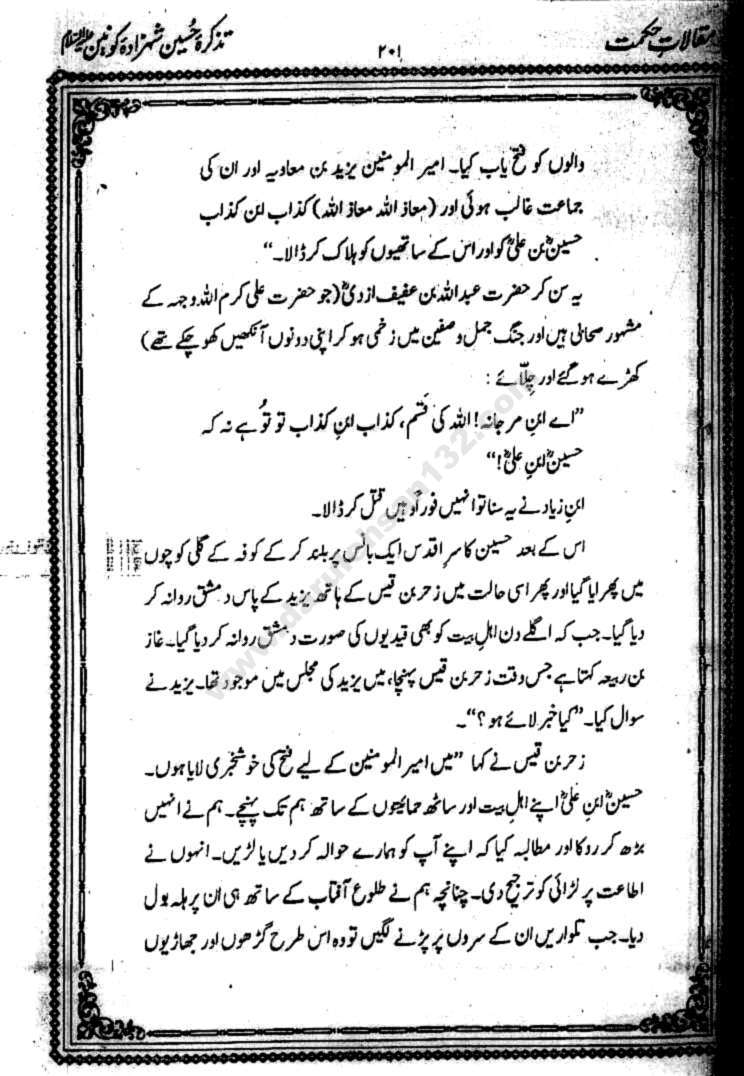 مقالاتِ حکمت
۲۰۱
تذکرۂ حُسین شہزادۂ کونین
والوں کو فتح یاب کیا۔ امیر المومنین یزید بن معاویہ اور ان کی
جماعت غالب ہوئی اور (معاذ اللہ معاذ اللہ) کذاب ابن کذاب
حسینؓ بن علیؓ کو اور اس کے ساتھیوں کو ہلاک کر ڈالا۔“
یہ سن کر حضرت عبداللہ بن عفیف ازدیؓ (جو حضرت علی کرم اللہ وجہہ کے
مشہور صحابی ہیں اور جنگ جمل و صفین میں زخمی ہو کر اپنی دونوں آنکھیں کھو چکے تھے)
کھڑے ہو گئے اور چِلّائے :
”اے ابنِ مرجانہ! اللہ کی قسم، کذاب ابنِ کذاب تو تُو ہے نہ کہ
حسینؓ ابنِ علیؓ!“
ابنِ زیاد نے یہ سنا تو انہیں فوراً وہیں قتل کر ڈالا۔
اس کے بعد حسین کا سرِ اقدس ایک بانس پر بلند کر کے کوفہ کے گلی کوچوں
میں پھرایا گیا اور پھر اسی حالت میں زحر بن قیس کے ہاتھ یزید کے پاس دمشق روانہ کر
دیا گیا۔ جب کہ اگلے دن اہلِ بیت کو بھی قیدیوں کی صورت دمشق روانہ کر دیا گیا۔ غاز
بن ربیعہ کہتا ہے جس وقت زحر بن قیس پہنچا، میں یزید کی مجلس میں موجود تھا۔ یزید نے
سوال کیا۔ ”کیا خبر لائے ہو؟“۔
زحر بن قیس نے کہا ”میں امیر المومنین کے لیے فتح کی خوشخبری لایا ہوں۔
حسینؓ ابنِ علیؓ اپنے اہلِ بیت اور ساٹھ حمایتوں کے ساتھ ہم تک پہنچے۔ ہم نے انہیں
بڑھ کر روکا اور مطالبہ کیا کہ اپنے آپ کو ہمارے حوالہ کر دیں یا لڑیں۔ انہوں نے
اطاعت پر لڑائی کو ترجیح دی۔ چنانچہ ہم نے طلوع آفتاب کے ساتھ ہی ان پر ہلہ بول
دیا۔ جب تلواریں ان کے سروں پر پڑنے لگیں تو وہ اس طرح گڑھوں اور جھاڑیوں